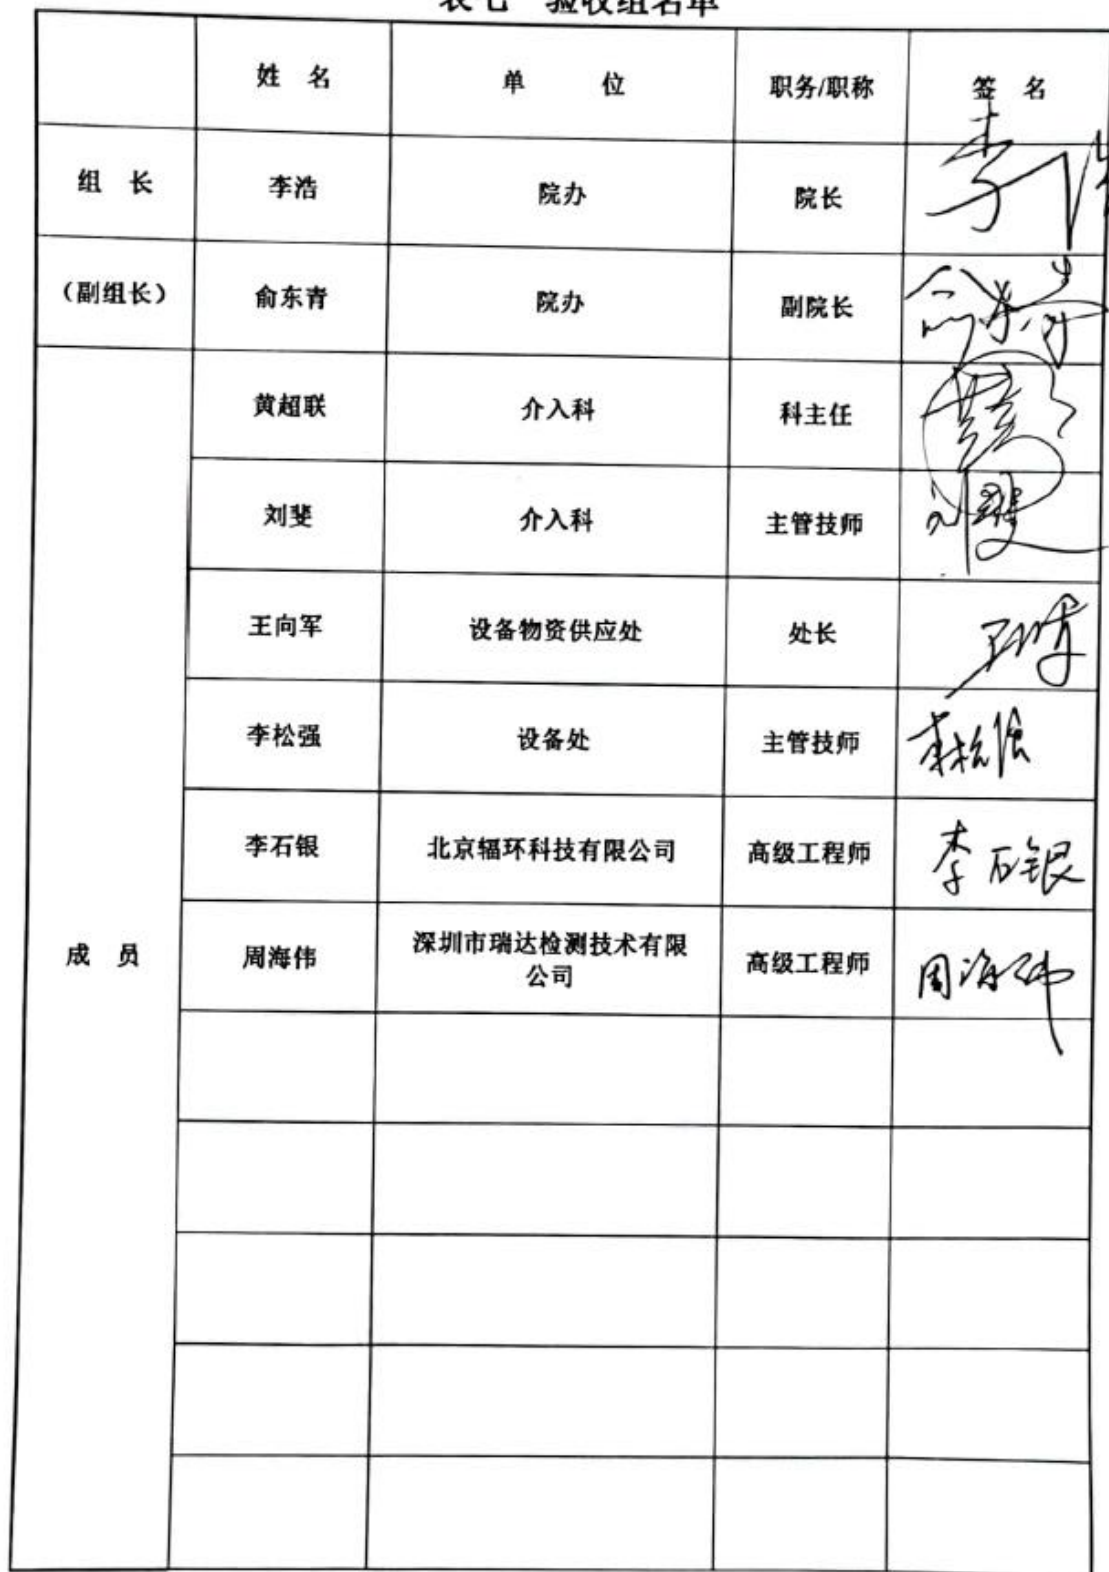 表七 验收组名单
姓 名 单 位 职务/职称 签 名
组 长 李浩 院办 院长 李浩
（副组长） 俞东青 院办 副院长 俞东青
黄超联 介入科 科主任
刘斐 介入科 主管技师 刘斐
王向军 设备物资供应处 处长
李松强 设备处 主管技师 李松强
李石银 北京辐环科技有限公司 高级工程师 李石银
成 员 周海伟 深圳市瑞达检测技术有限 高级工程师 周海伟
公司